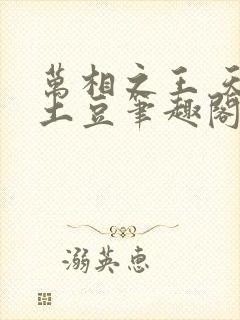 萬相之王 天
土豆筆趣閣
溺英惠